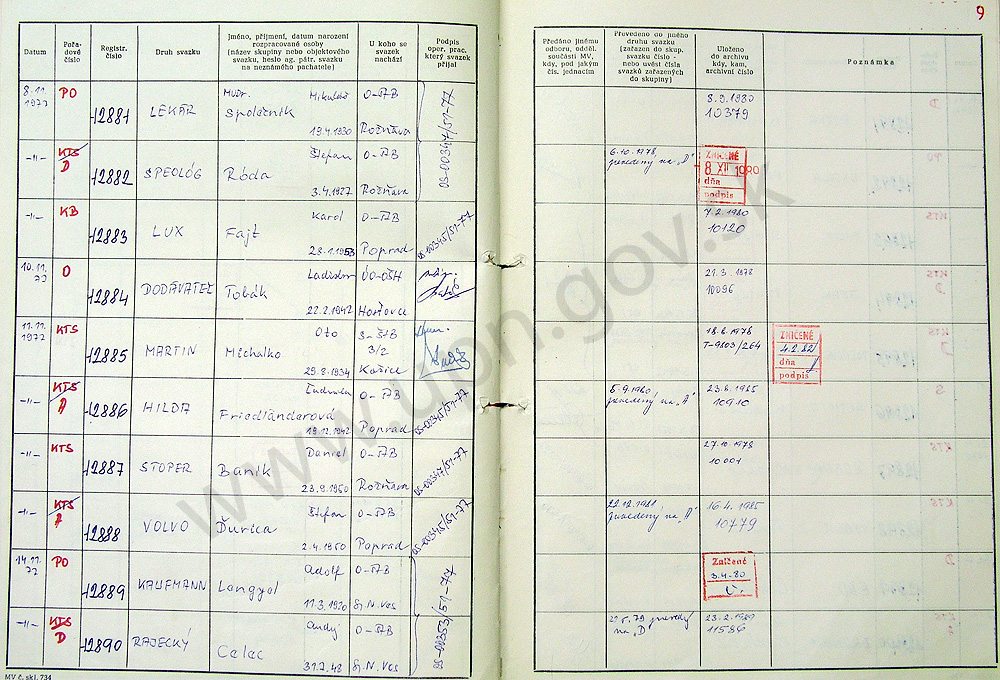 9
Datum
Pořadové číslo
Registr. číslo
Druh svazku
jméno, příjmení, datum narození rozpracované osoby (název skupiny nebo objektového svazku, heslo ag. pátr. svazku na neznámého pachatele)
U koho se svazek nachází
Podpis oper. prac. který svazek přijal
Předáno jinému odboru, odděl. součásti MV, kdy, pod jakým čís. jednacím
Převedeno do jiného druhu svazku (zařazen do skup. svazku číslo - nebo uvést čísla svazků zařazených do skupiny)
Uloženo do archivu kdy, kam, archivní číslo
Poznámka
8.11. 1977 PO 12881 LEKÁR MUDr. Mikuláš Spoločník 19.4.1930 O-ŠtB Rožňava OS-00347/51-77 8.9.1980 10379
-"- KTS D 12882 SPEOLÓG Štefan Róda 3.4.1927 O-ŠtB Rožňava 6.10.1978 prevedený na „D" ZNIČENÉ 8 XII 1980 dňa podpis
-"- KB 12883 LUX Karol Fajt 28.1.1953 O-ŠtB Poprad OS-00345/51-77 7.2.1980 10120
10.11. O 12884 DODÁVATEĽ Ladislav Tobák 22.2.1942 21.3.1978 10096
11.11. 1977 KTS 12885 MARTIN Oto Michalko 29.8.1934 3/2 Košice 18.8.1978 T-9803/264 ZNIČENÉ 4.2.82 dňa podpis
-"- KTS A 12886 HILDA Ľudmila Friedländerová 19.12.1942 O-ŠtB Poprad OS-00345/51-77 5.9.1980 prevedený na „A" 23.8.1985 10910
-"- KTS 12887 STOPER Daniel Baník 23.9.1950 O-ŠtB Rožňava OS-00347/51-77 27.10.1978 10001
-"- KTS A 12888 VOLVO Štefan Ďurica 2.4.1950 O-ŠtB Poprad OS-00345/51-77 22.12.1981 prevedený na „A" 16.4.1985 10779
14.11. PO 12889 KAUFMANN Adolf Lengyel 11.3.1930 O-ŠtB Sp.N.Ves OS-00353/51-77 Zničené 3.4.80
-"- KTS D 12890 RAJECKÝ Celec O-ŠtB Sp.N.Ves na „D" 23.2.1989 11586
MV č. skl. 734
www.upn.gov.sk